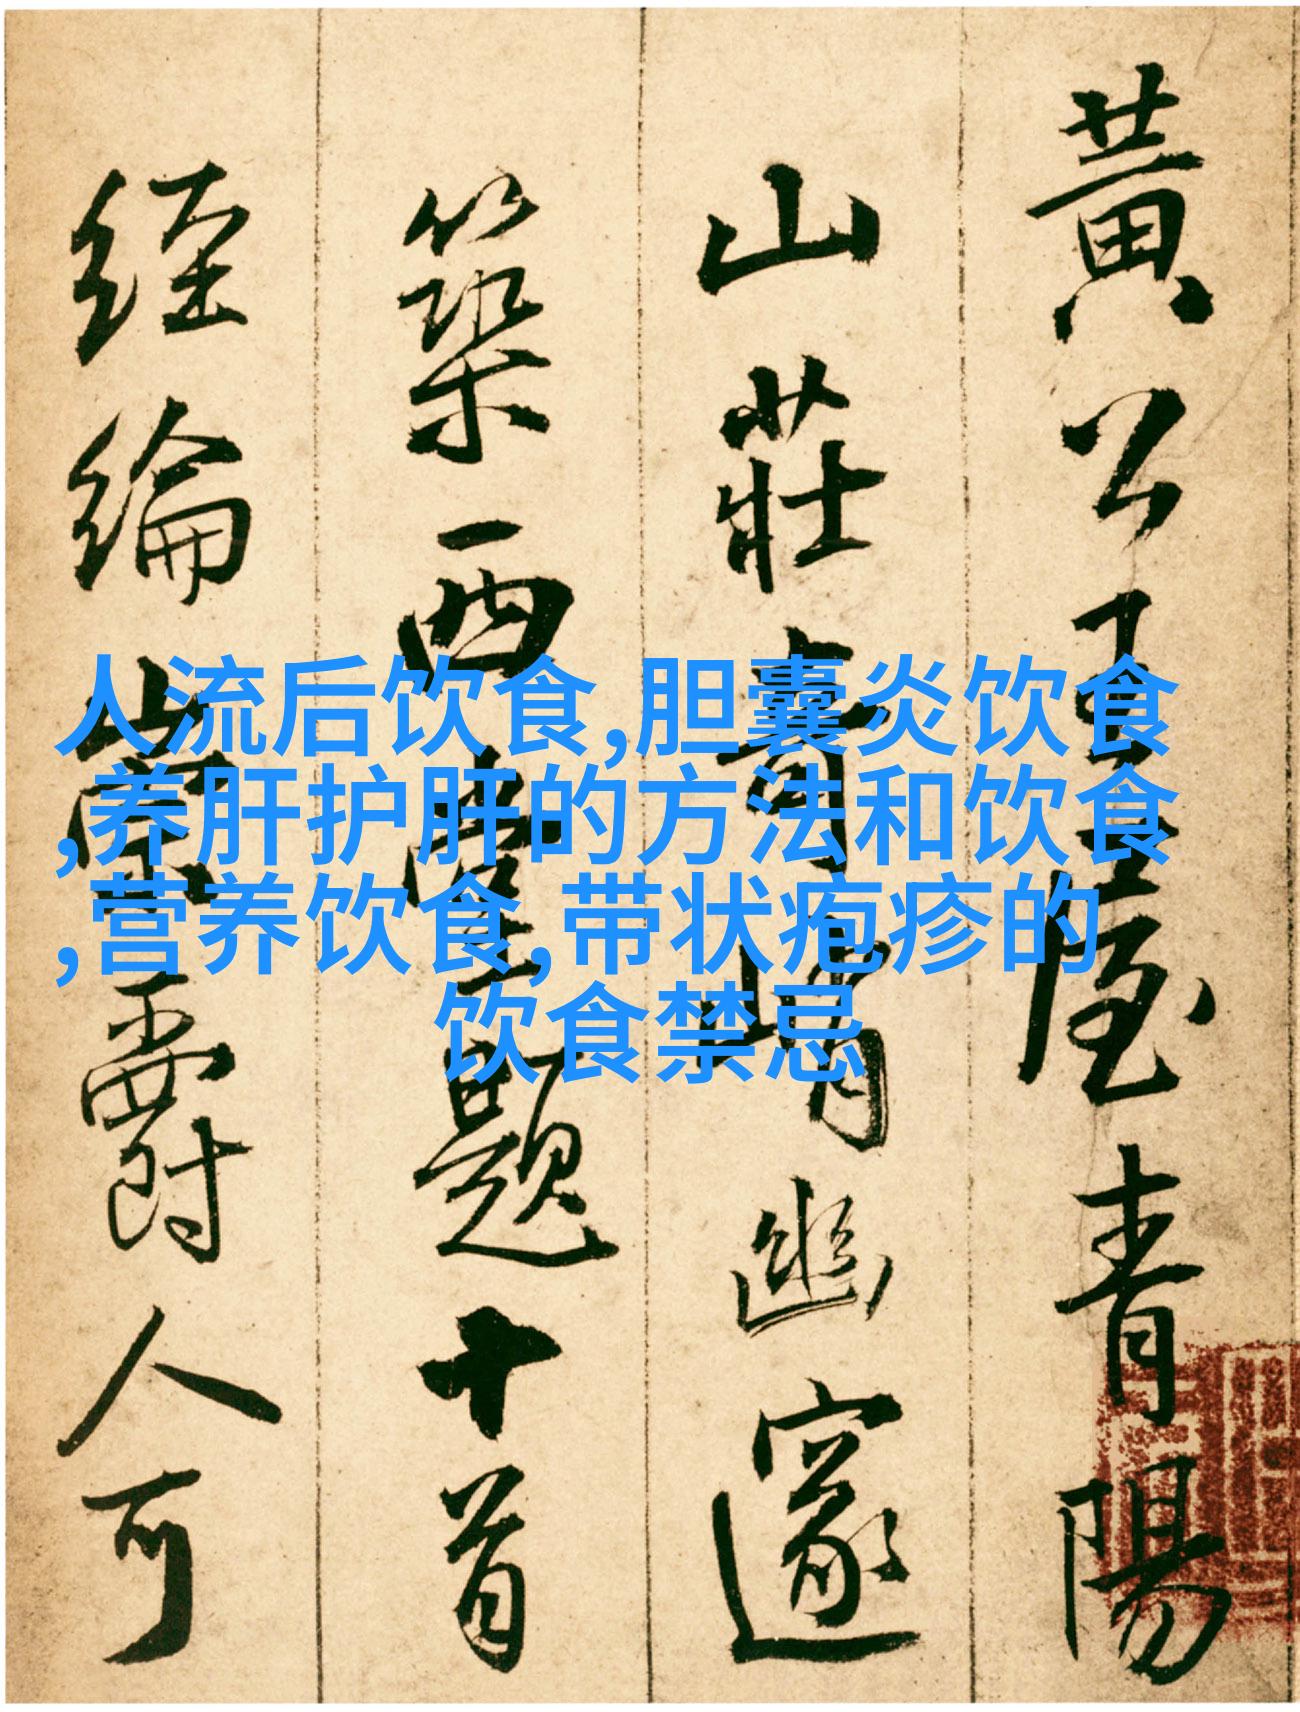 黄公玉屋青陽
山莊青嶂幽邃
築西堂題十首
經綸常爵人可
人流后饮食,胆囊炎饮食
,养肝护肝的方法和饮食
,营养饮食,带状疱疹的
饮食禁忌